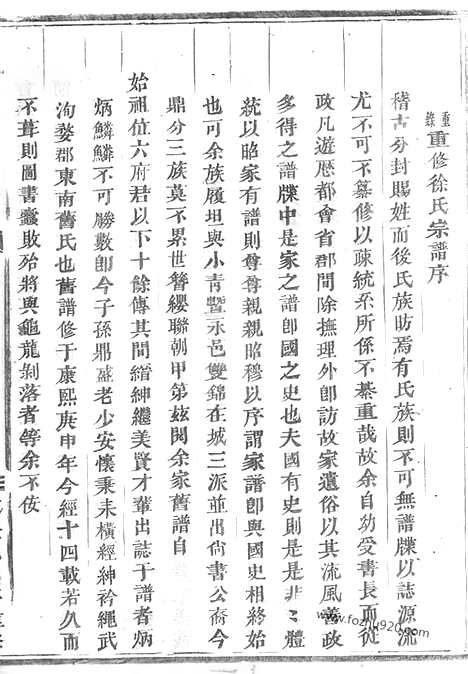 重鐫重修徐氏宗譜序
稽古分封賜姓而後氏族昉焉有氏族則不可無譜牒以誌源流
尤不可不纂修以疎統系所係不綦重哉故余自幼受書長而從
政凡遊歷都會省郡間除撫理外卽訪故家遺俗以其流風善政
多得之譜牒中是家之譜卽國之史也夫國有史則是是非〻體
統以昭家有譜則尊尊親親昭穆以序謂家譜卽與國史相終始
也可余族履坦與小青暨永邑雙錦在城三派並出尙書公裔今
鼎分三族莫不累世簪纓聯朝甲第茲閱余家舊譜自
始祖位六府君以下十餘傳其間縉紳繼美賢才輩出誌于譜者炳
炳鱗鱗不可勝數卽今子孫鼎盛老少安懷秉耒橫經紳衿繩武
洵婺郡東南舊氏也舊譜修于康熙庚申年今經十四載若久而
不葺則圖書蠹敗殆將與龜龍剝落者等余不侫
www.fozhu920.com